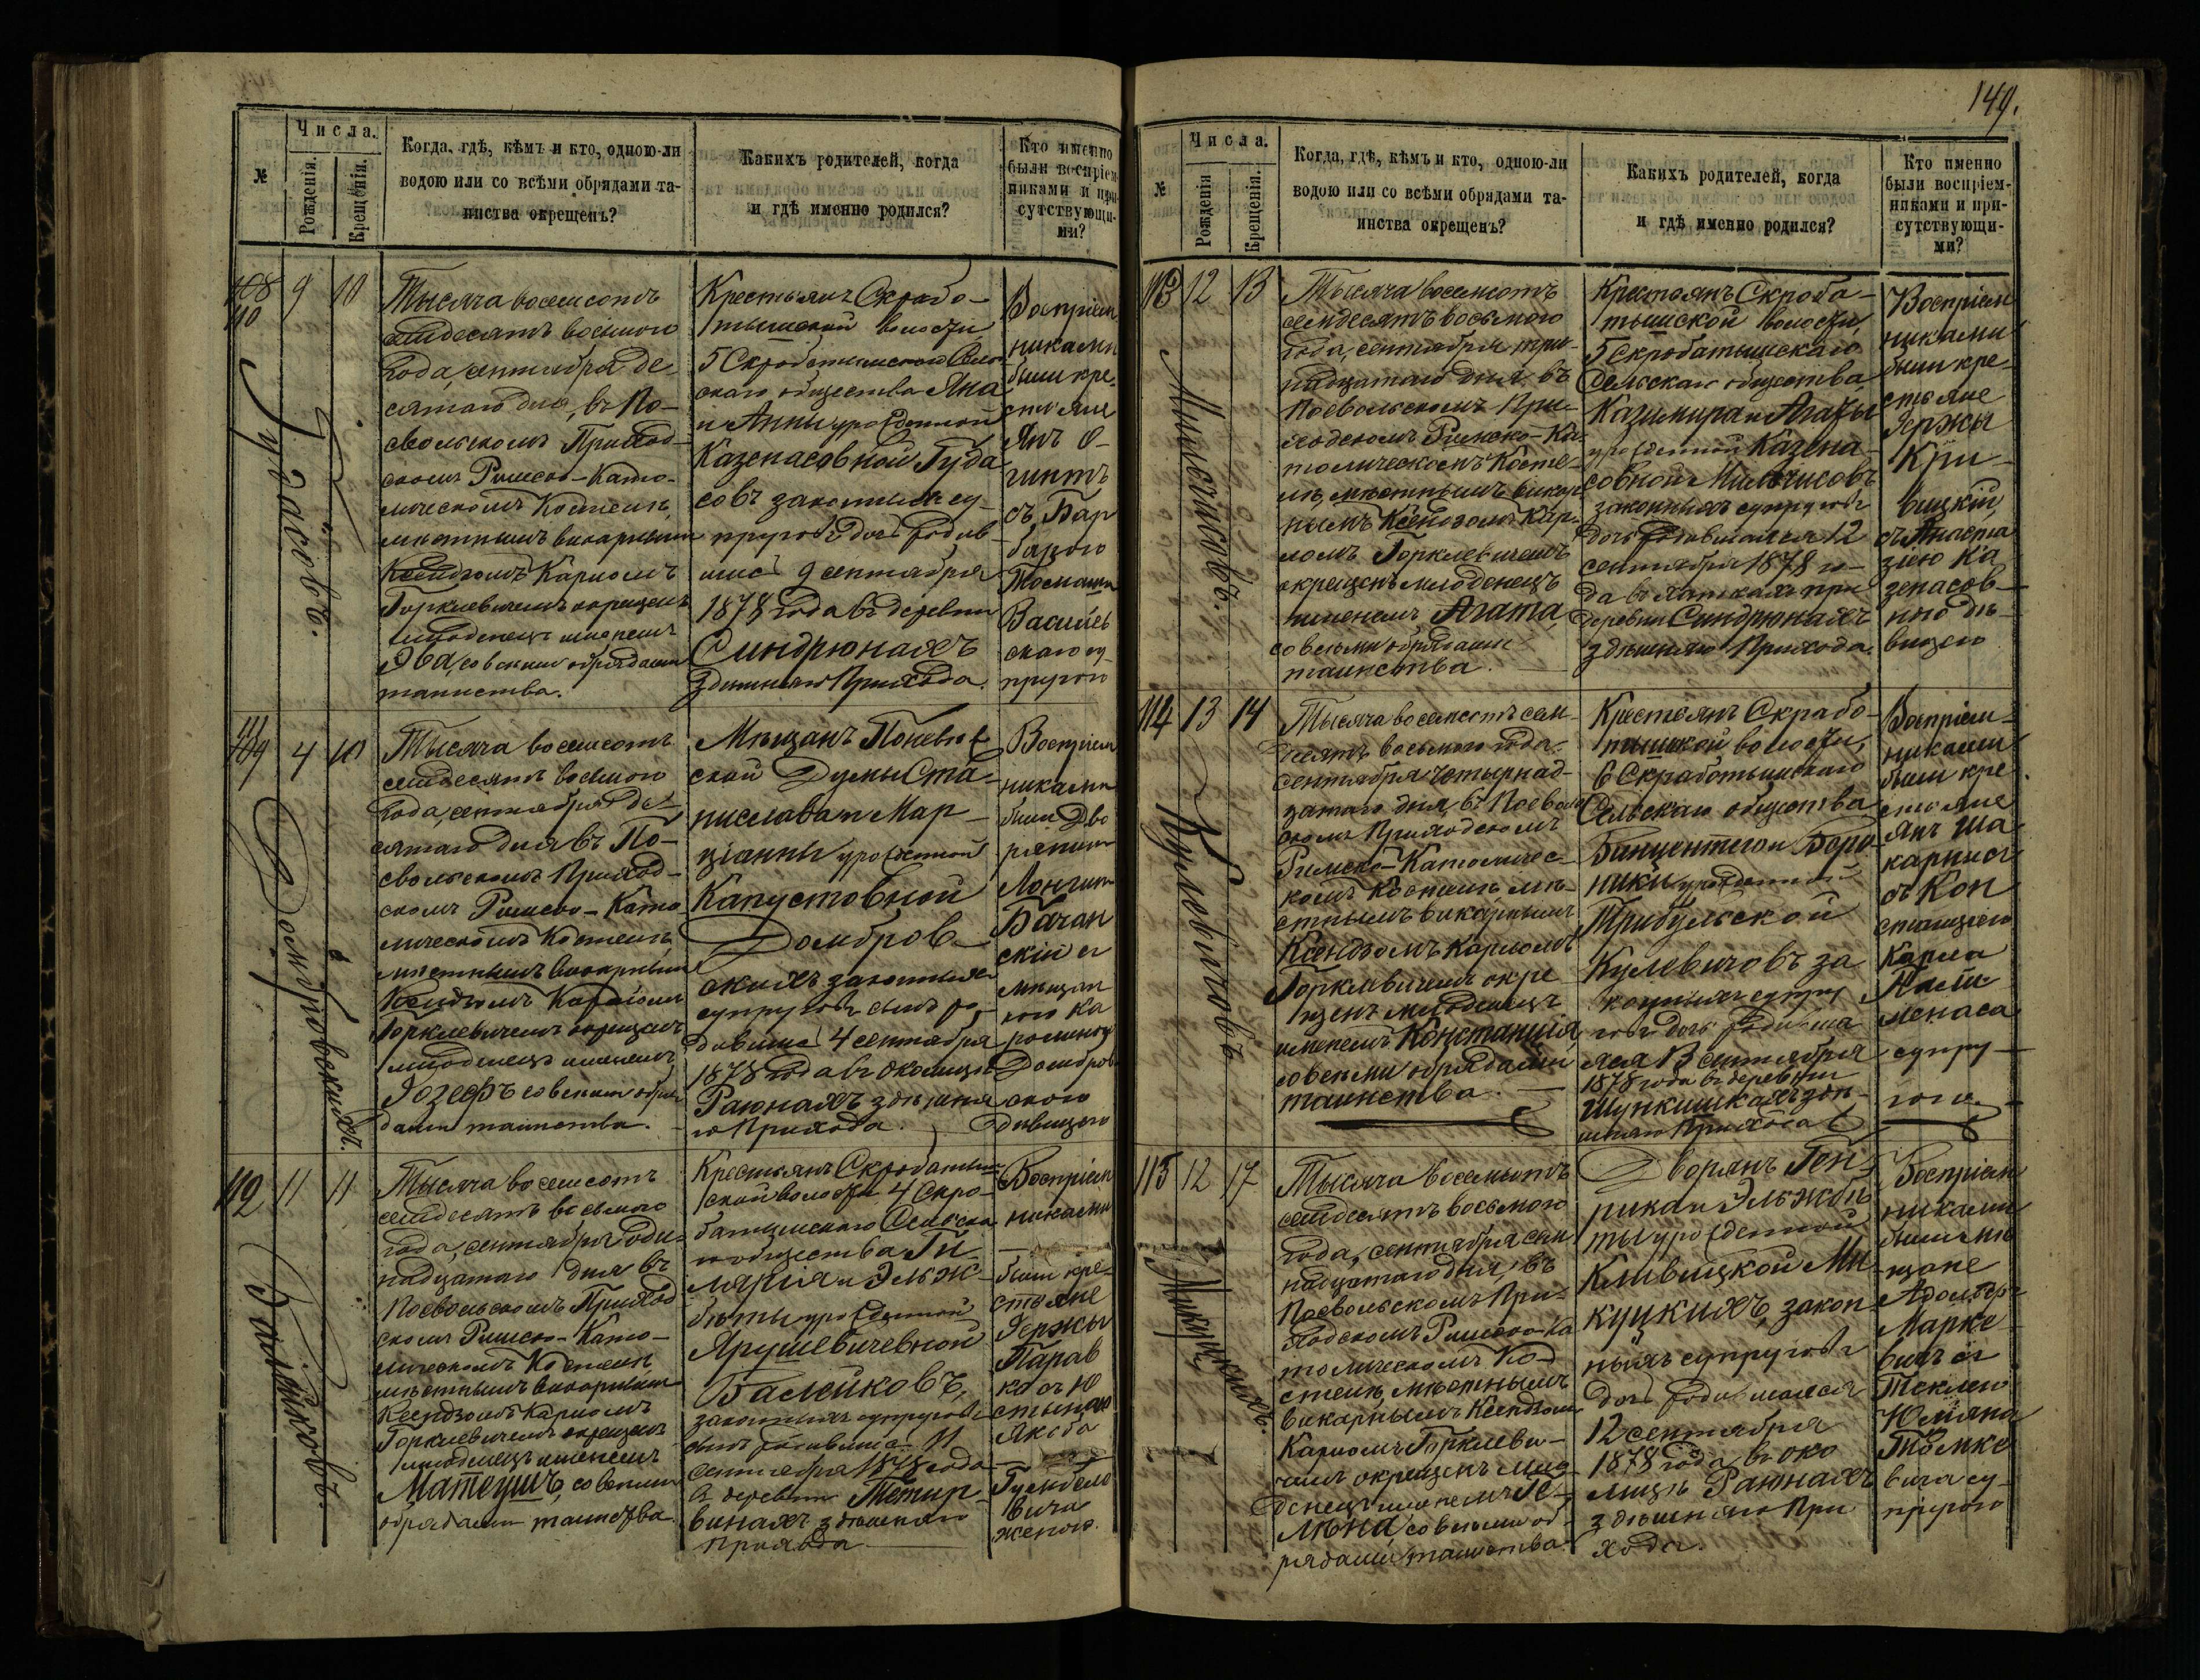 149.
№
Числа.
Рожденія.
Крещенія.
Когда, гдѣ, кѣмъ и кто, одною-ли
водою или со всѣми обрядами та-
инства окрещенъ?
Какихъ родителей, когда
и гдѣ именно родился?
Кто именно
были воспріем-
никами и при-
сутствующи-
ми?
108
110
9
10
Гудасовъ.
Тысяча восемсотъ
семдесятъ восьмого
года, сентября де-
сятаго дня, въ По-
свольскомъ Приход-
скомъ Римско-Като-
лическомъ Костелѣ,
мѣстнымъ викарнымъ
Ксендзомъ Карломъ
Горклевичемъ окрещенъ
младенецъ именемъ
Эва, со всѣми обрядами
таинства.
Крестьянъ Скрабо-
тышской волости
5 Скробатышскаго Сель-
скаго общества Яна
и Анны урожденной
Казенасовной Гуда
совъ законныхъ су-
пруговъ дочь родив
шаяся 9 сентября
1878 года въ деревни
Синдрюнахъ
здѣшняго Прихода.
Воспріем
никами
были кре-
стьяне
Янъ О-
гинтъ
съ Бар
барою
Томаша
Васильев
скаго су-
пругою
111
109
4
10
Домбровскихъ.
Тысяча восемсотъ
семдесятъ восьмого
года, сентября де-
сятаго дня въ По-
свольскомъ Приход-
скомъ Римско-Като
лическомъ Костелѣ
мѣстнымъ Викарнымъ
Ксендзомъ Карломъ
Горклевичемъ окрещенъ
младенецъ именемъ
Юзефъ со всѣми обря-
дами таинства.
Мѣщанъ Поневѣж
ской Думы Ста-
нислава и Мар-
ціанны урожденной
Капустовной
Домбров-
скихъ законныхъ
супруговъ сынъ ро-
дився 4 сентября
1878 года въ околицѣ
Раюнахъ здѣшня
го Прихода.
Воспріем
никами
были Дво
рянинъ
Лонгинъ
Бачан
скій съ
мѣщан
кою Ка
ролиною
Домбров
скою
дѣвицею
112
11
11
Балейковъ.
Тысяча восемсотъ
семдесятъ восьмого
года, сентября оди-
надцатаго дня въ
Посвольскомъ Приход
скомъ Римско-Като-
лическомъ Костелѣ,
мѣстнымъ Викарнымъ
Ксендзомъ Карломъ
Горклевичемъ окрещенъ
младенецъ именемъ
Матеушъ, со всѣми
обрядами таинства.
Крестьянъ Скробатыш-
ской волости 4 Скро-
батышскаго Сельска
го общества Ги-
лярія и Эльж-
бѣты урожденной
Ярушевичевной
Балейковъ,
законныхъ супруговъ
сынъ родився 11
сентября 1878 года
въ деревни Тетир-
винахъ здѣшняго
прихода.
Воспріем
никами
были кре-
стьяне
Ержы
Парав
ко съ Ю
стыною
Якоба
Гумбело
вича
женою.
№
Числа.
Рожденія
Крещенія.
Когда, гдѣ, кѣмъ и кто, одною-ли
водою или со всѣми обрядами та-
инства окрещенъ?
Какихъ родителей, когда
и гдѣ именно родился?
Кто именно
были воспріем-
никами и при-
сутствующи-
ми?
113
12
13
Мильчисовъ.
Тысяча восемсотъ
семдесятъ восьмого
года, сентября три-
надцатаго дня, въ
Посвольскомъ При-
ходскомъ Римско-Ка-
толическомъ Косте-
лѣ, мѣстнымъ викар
нымъ Ксендзомъ Кар-
ломъ Горклевичемъ
окрещенъ младенецъ
именемъ Агата
со всѣми обрядами
таинства.
Крестьянъ Скроба-
тышской волости,
5 Скробатышскаго
Сельскаго общества
Казимира и Агаты
урожденной Казена-
совной Мильчисовъ
законныхъ супруговъ
дочь родившаяся 12
сентября 1878 го-
да въ
деревни Синдрюнахъ
здѣшняго Прихода.
Воспріем
никами
были кре-
стьяне
Ержы
Кри-
вицкій,
съ Анаста
зіею Ка
зенасов-
ною дѣ-
вицею
114
13
14
Кулевичовъ
Тысяча восемсотъ сем-
десятъ восьмого года,
сентября четырнад-
цатаго дня, въ Посволь
скомъ Приходскомъ
Римско-Католичес-
комъ Костелѣ мѣ-
стнымъ викарнымъ
Ксендзомъ Карломъ
Горклевичемъ окре
щенъ младенецъ
именемъ Констанція
со всѣми обрядами
таинства.
Крестьянъ Скрабо-
тышской волости,
6 Скработышскаго
Сельскаго общества
Винцентего и Веро-
ники урожденной
Трибульской
Кулевичовъ за
конныхъ супру
говъ дочь родивша
яся 13 сентября
1878 года въ деревни
Шункишкахъ здѣ-
шняго Прихода
Воспріем-
никами
были кре
стьяне
Янъ Ша
карнисъ
съ Кон
станціею
Карла
супру-
гою.
115
12
17
Микуцкихъ.
Тысяча восемсотъ
семдесятъ восьмого
года, сентября сем-
надцатаго дня, въ
Посвольскомъ При-
ходскомъ Римско-Ка
толическомъ Ко-
стелѣ, мѣстнымъ
викарнымъ Ксендзомъ
Карломъ Горклеви-
чемъ окрещенъ мла-
денецъ именемъ Ге-
лѣна, со всѣми об-
рядами таинства.
Дворянъ Ген-
рика и Эльжбѣ
ты урожденной
Кливицкой Ми
куцкихъ, закон-
ныхъ супруговъ
дочь родившаяся
12 сентября
1878 года въ око
лицѣ Раюнахъ
здѣшняго При
хода.
Воспріем
никами
были мѣ
щане
Адольфъ
Марке
вичъ съ
Теклею
Юліана
Томке
вича су-
пругою